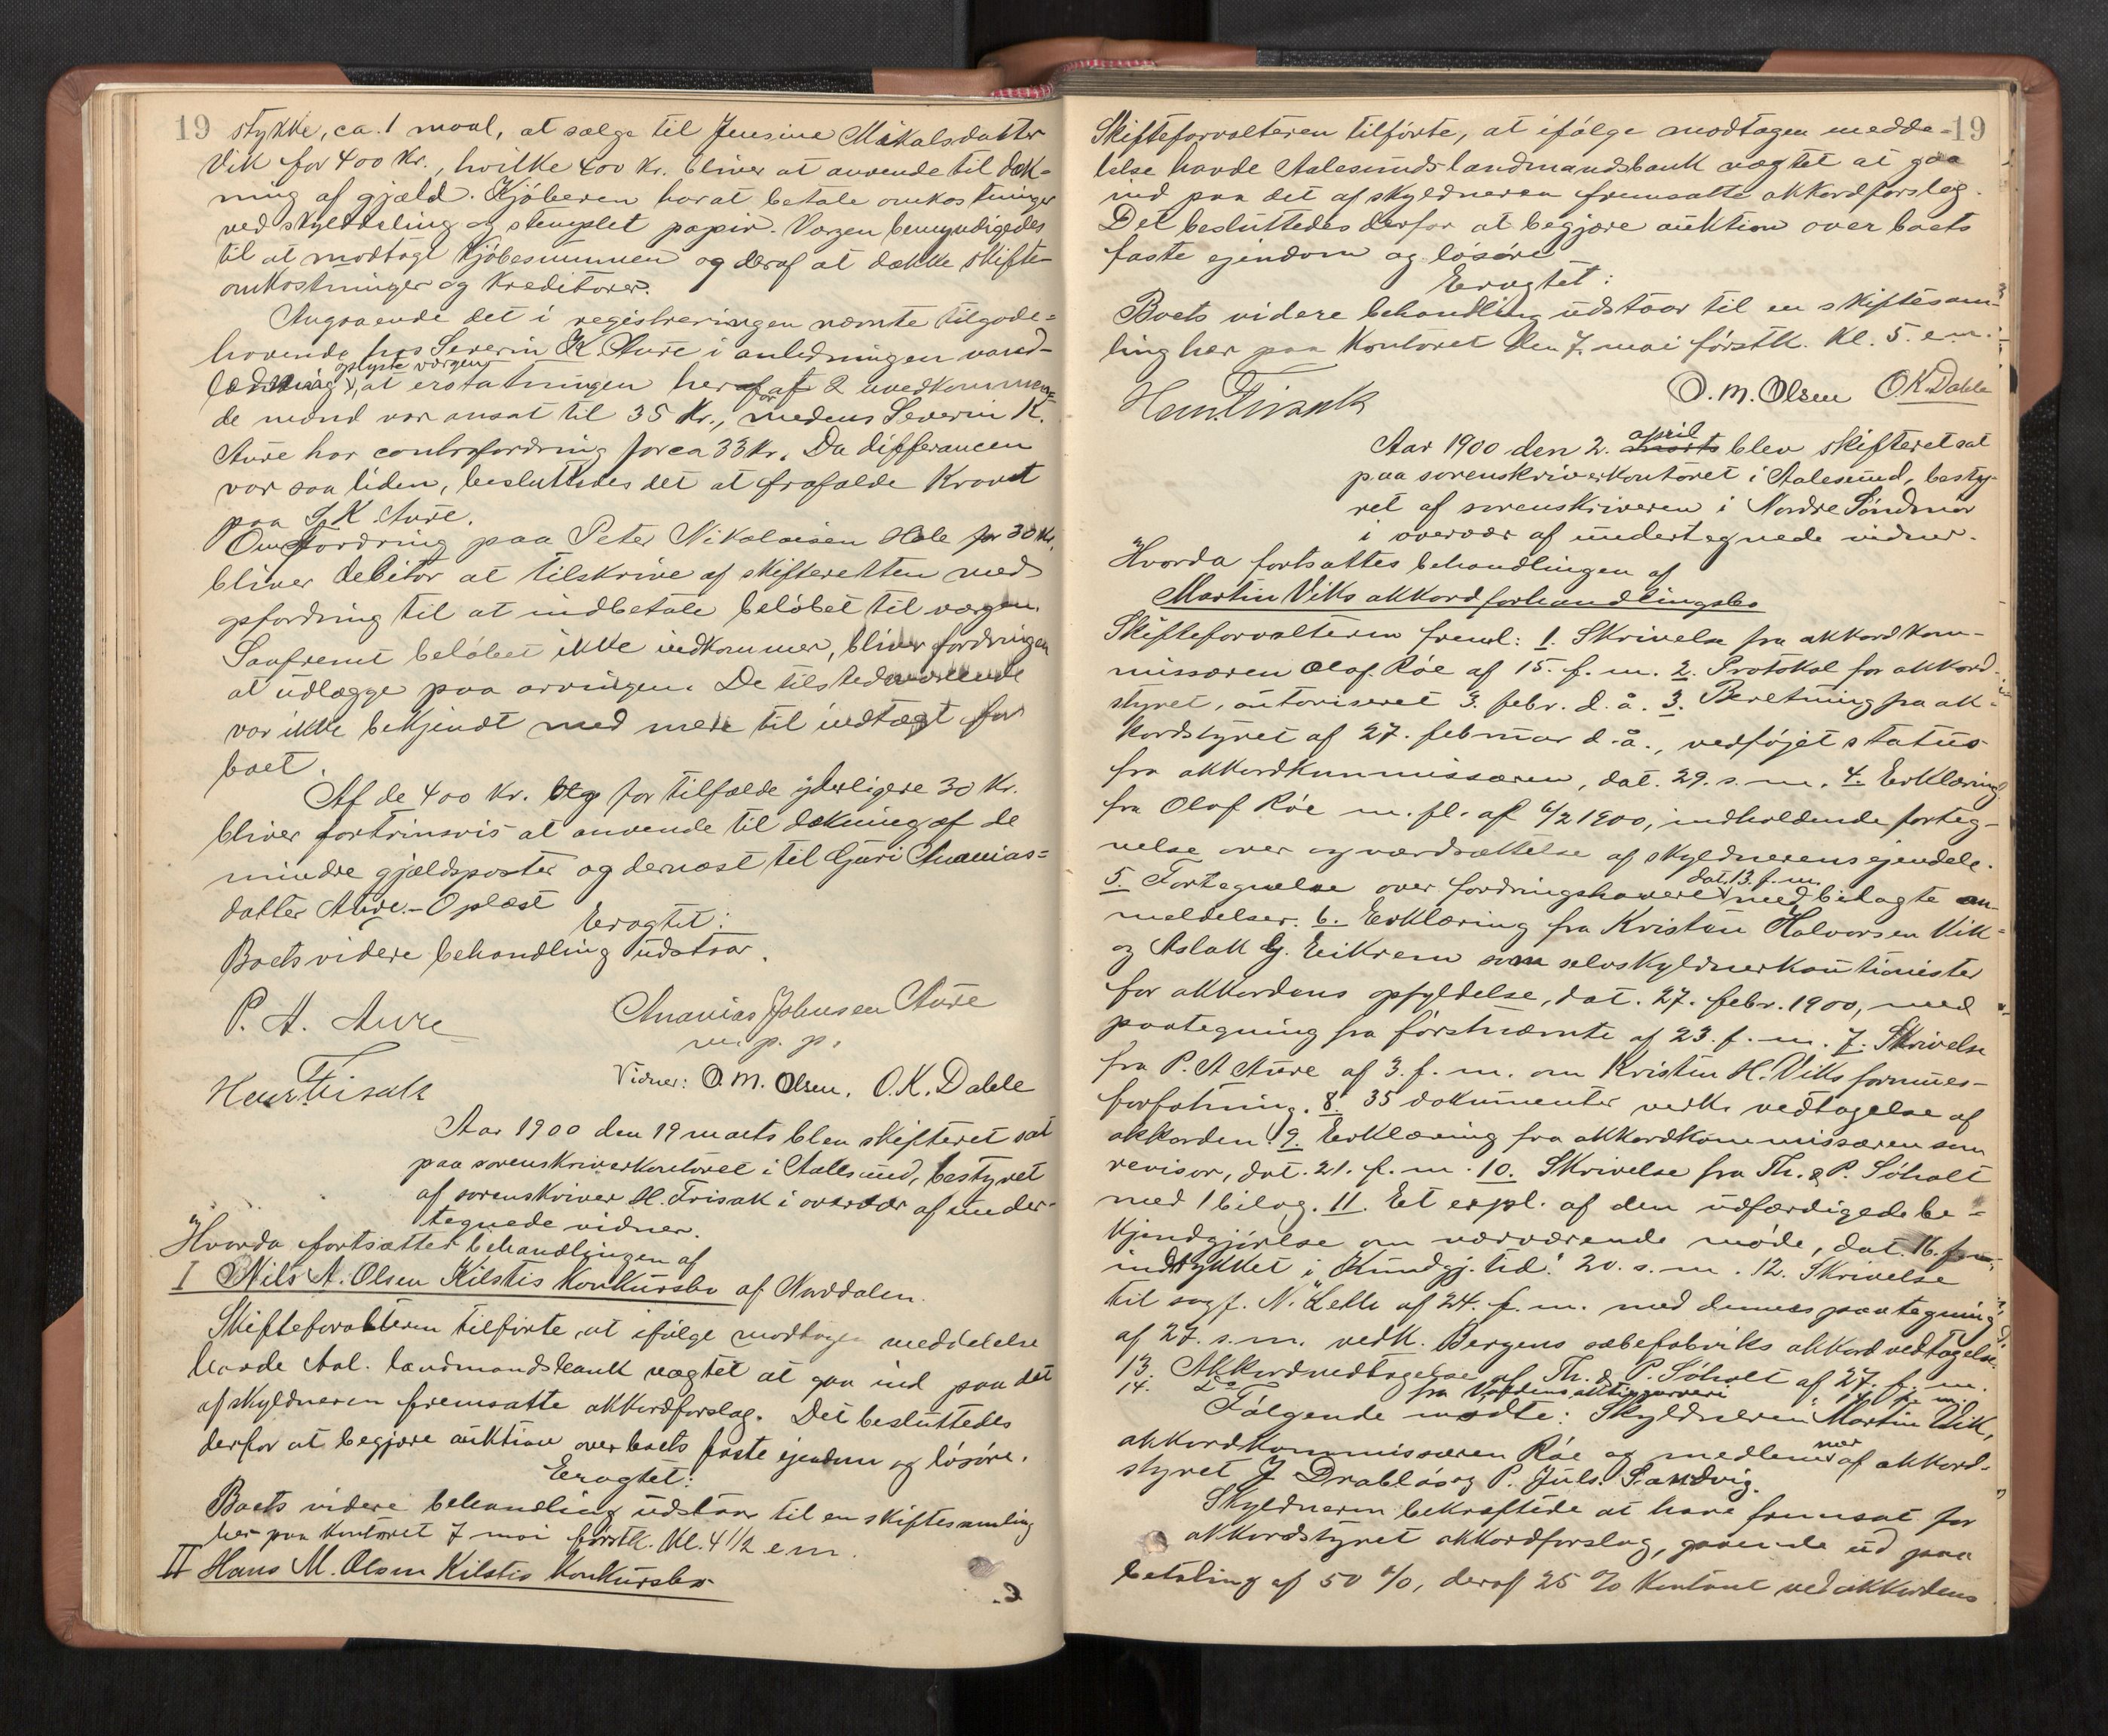 19 stykke, ca. 1 maal, at sælge til Jensine Mikalsdatter
Vik for 400 kr., hvilke 400 kr. bliver at anvende til dæk-
ning af gjæld. Kjøberen har at betale omkostninger
ved skylddeling og stemplet papir. Værgen bemyndigedes
til at modtage kjøbesummen og deraf at dække skifte-
omkostninger og kreditorer.
Angaaende det i registreringen nævnte tilgode-
havende hos Severin K. Aure i anledningen vand-
ledning oplyste værgen, at erstatningen herfor af 2 uvedkommen-
de mænd var ansat til 35 kr., medens Severin K.
Aure har contrafordring for ca 33 kr. Da differancen
var saa liden, besluttedes det at frafalde kravet
paa S. K. Aure.
Om fordring paa Peter Nikolaisen Hole for 30 kr.
bliver debitor at tilskrive af skifteretten med
opfordring til at indbetale beløbet til værgen.
Saafremt beløbet ikke indkommer, bliver fordringen
at udlægge paa arvingen. De tilstedeværende
var ikke bekjendt med mere til indtægt for
boet.
Af de 400 kr. og for tilfælde yderligere 30 kr.
bliver fortrinsvis at anvende til dækning af de
mindre gjældsposter og dernæst til Guri Ananias-
datter Aure. – Oplæst
Eragtet:
Boets videre behandling udstaar.
P. A. Aure
Ananias Johnsen Aure
m. p. p.
Henr. Frisak
Vidner: O. M. Olsen. O. K. Dahle
Aar 1900 den 19 marts blev skifteret sat
paa sorenskriverkontoret i Aalesund, bestyret
af sorenskriver H. Frisak i overvær af under-
tegnede vidner.
Hvorda fortsattes behandlingen af
I Nils A. Olsen Kilstis konkursbo af Norddalen.
Skifteforvalteren tilførte, at ifølge modtagen meddelelse
havde Aal. landmandsbank nægtet at gaa ind paa det
af skyldneren fremsatte akkordforslag. Det besluttedes
derfor at begjære auktion over boets faste ejendom og løsøre.
Eragtet:
Boets videre behandling udstaar til en skiftesamling
her paa kontoret 7 mai førstk. kl. 4 1/2 em.
II Hans M. Olsen Kilstis konkursbo
19
Skifteforvalteren tilførte, at ifølge modtagen medde-
lelse havde Aalesunds landmandsbank nægtet at gaa
ind paa det af skyldneren fremsatte akkordforslag.
Det besluttedes derfor at begjære auktion over boets
faste ejendom og løsøre
Eragtet:
Boets videre behandling udstaar til en skiftesam-
ling her paa kontoret den 7. mai førstk. kl. 5. em.
Henr. Frisak
O. M. Olsen O K Dahle
Aar 1900 den 2. marts april blev skifteret sat
paa sorenskriverkontoret i Aalesund, besty-
ret af sorenskriveren i Nordre Søndmør
i overvær af undertegnede vidner.
Hvorda fortsattes behandlingen af
Martin Viks akkordforhandlingsbo
Skifteforvalteren freml: 1. Skrivelse fra akkordkom-
missæren Olaf Röe af 15. f. m. 2. Protokol for akkord-
styret, autoriseret 3. febr. d. å. 3. Beretning fra ak-
kordstyret af 27. februar d. å., vedføjet status
fra akkordkommissæren, dat. 29. s. m. 4. Erklæring
fra Olaf Röe m. fl. af 6/2 1900, indholdende forteg-
nelse over og værdsættelse af skyldnerens ejendele.
5. Fortegnelse over fordringshavere dat. 13. f. m. med bilagte an-
meldelser. 6. Erklæring fra Kristen Halvorsen Vik
og Aslak G. Eikrem som selvskyldnerkautionister
for akkordens opfyldelse, dat. 27. febr. 1900, med
paategning fra førstnævnte af 23. f. m. 7. Skrivelse
fra P. A Aure af 3. f. m. om Kristen H. Viks formues-
forfatning. 8. 35 dokumenter vedk. vedtagelse af
akkorden. 9. Erklæring fra akkordkommissæren som
revisor, dat. 21. f. m. 10. Skrivelse fra Th. & P. Søholt
med 1 bilag. 11. Et expl. af den udfærdigede be-
kjendtgjørelse om nærværende møde, dat. 16. f. m.,
indrykket i „Kundgj. tid." 20. s. m. 12. Skrivelse
til sagf. N. Lelle af 24. f. m. med dennes paategning
af 27. s. m. vedk. Bergens sæbefabriks akkordvedtagelse.
13. Akkordvedtagelse af Th. & P. Søholt af 27. f. m.
14. Do fra
Følgende mødte: Skyldneren Martin Vik,
akkordkommissæren Röe og medlemmer af akkord-
styret J Drabløs og P. Juls. Sandvig.
Skyldneren bekræftede at have fremsat for
akkordstyret akkordforslag, gaaende ud paa
betaling af 50 %, deraf 25 % kontant ved akkordens